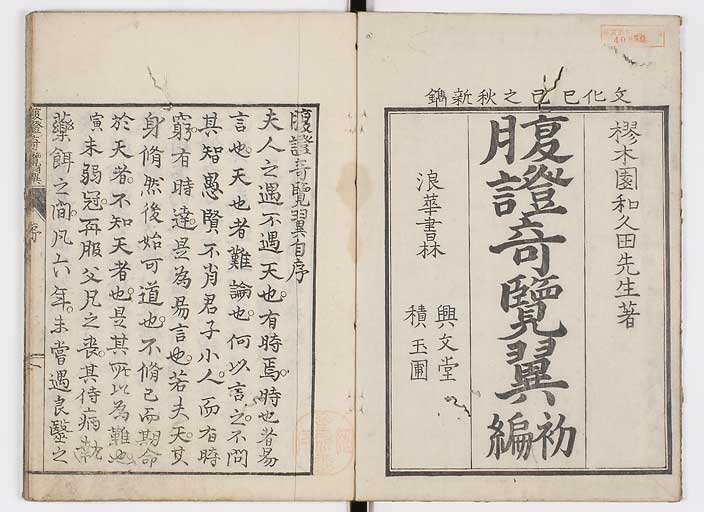 文化己巳之秋新鐫
樛木園和久田先生著
腹證奇覽翼
初編
浪華書林
興文堂
積玉圃
腹證奇覽翼自序
夫人之遇不遇天也有時焉時也者易
言也天也者難論也何以言之不問
其智愚賢不肖君子小人而有時
窮有時達是為易言也若夫天其
身脩然後始可道也不脩己而期命
於天者不知天者也是其所以為難也
寅未弱冠再服父兄之喪其侍病執
藥餌之間凡六年未嘗遇良醫之
腹證奇覽翼
序